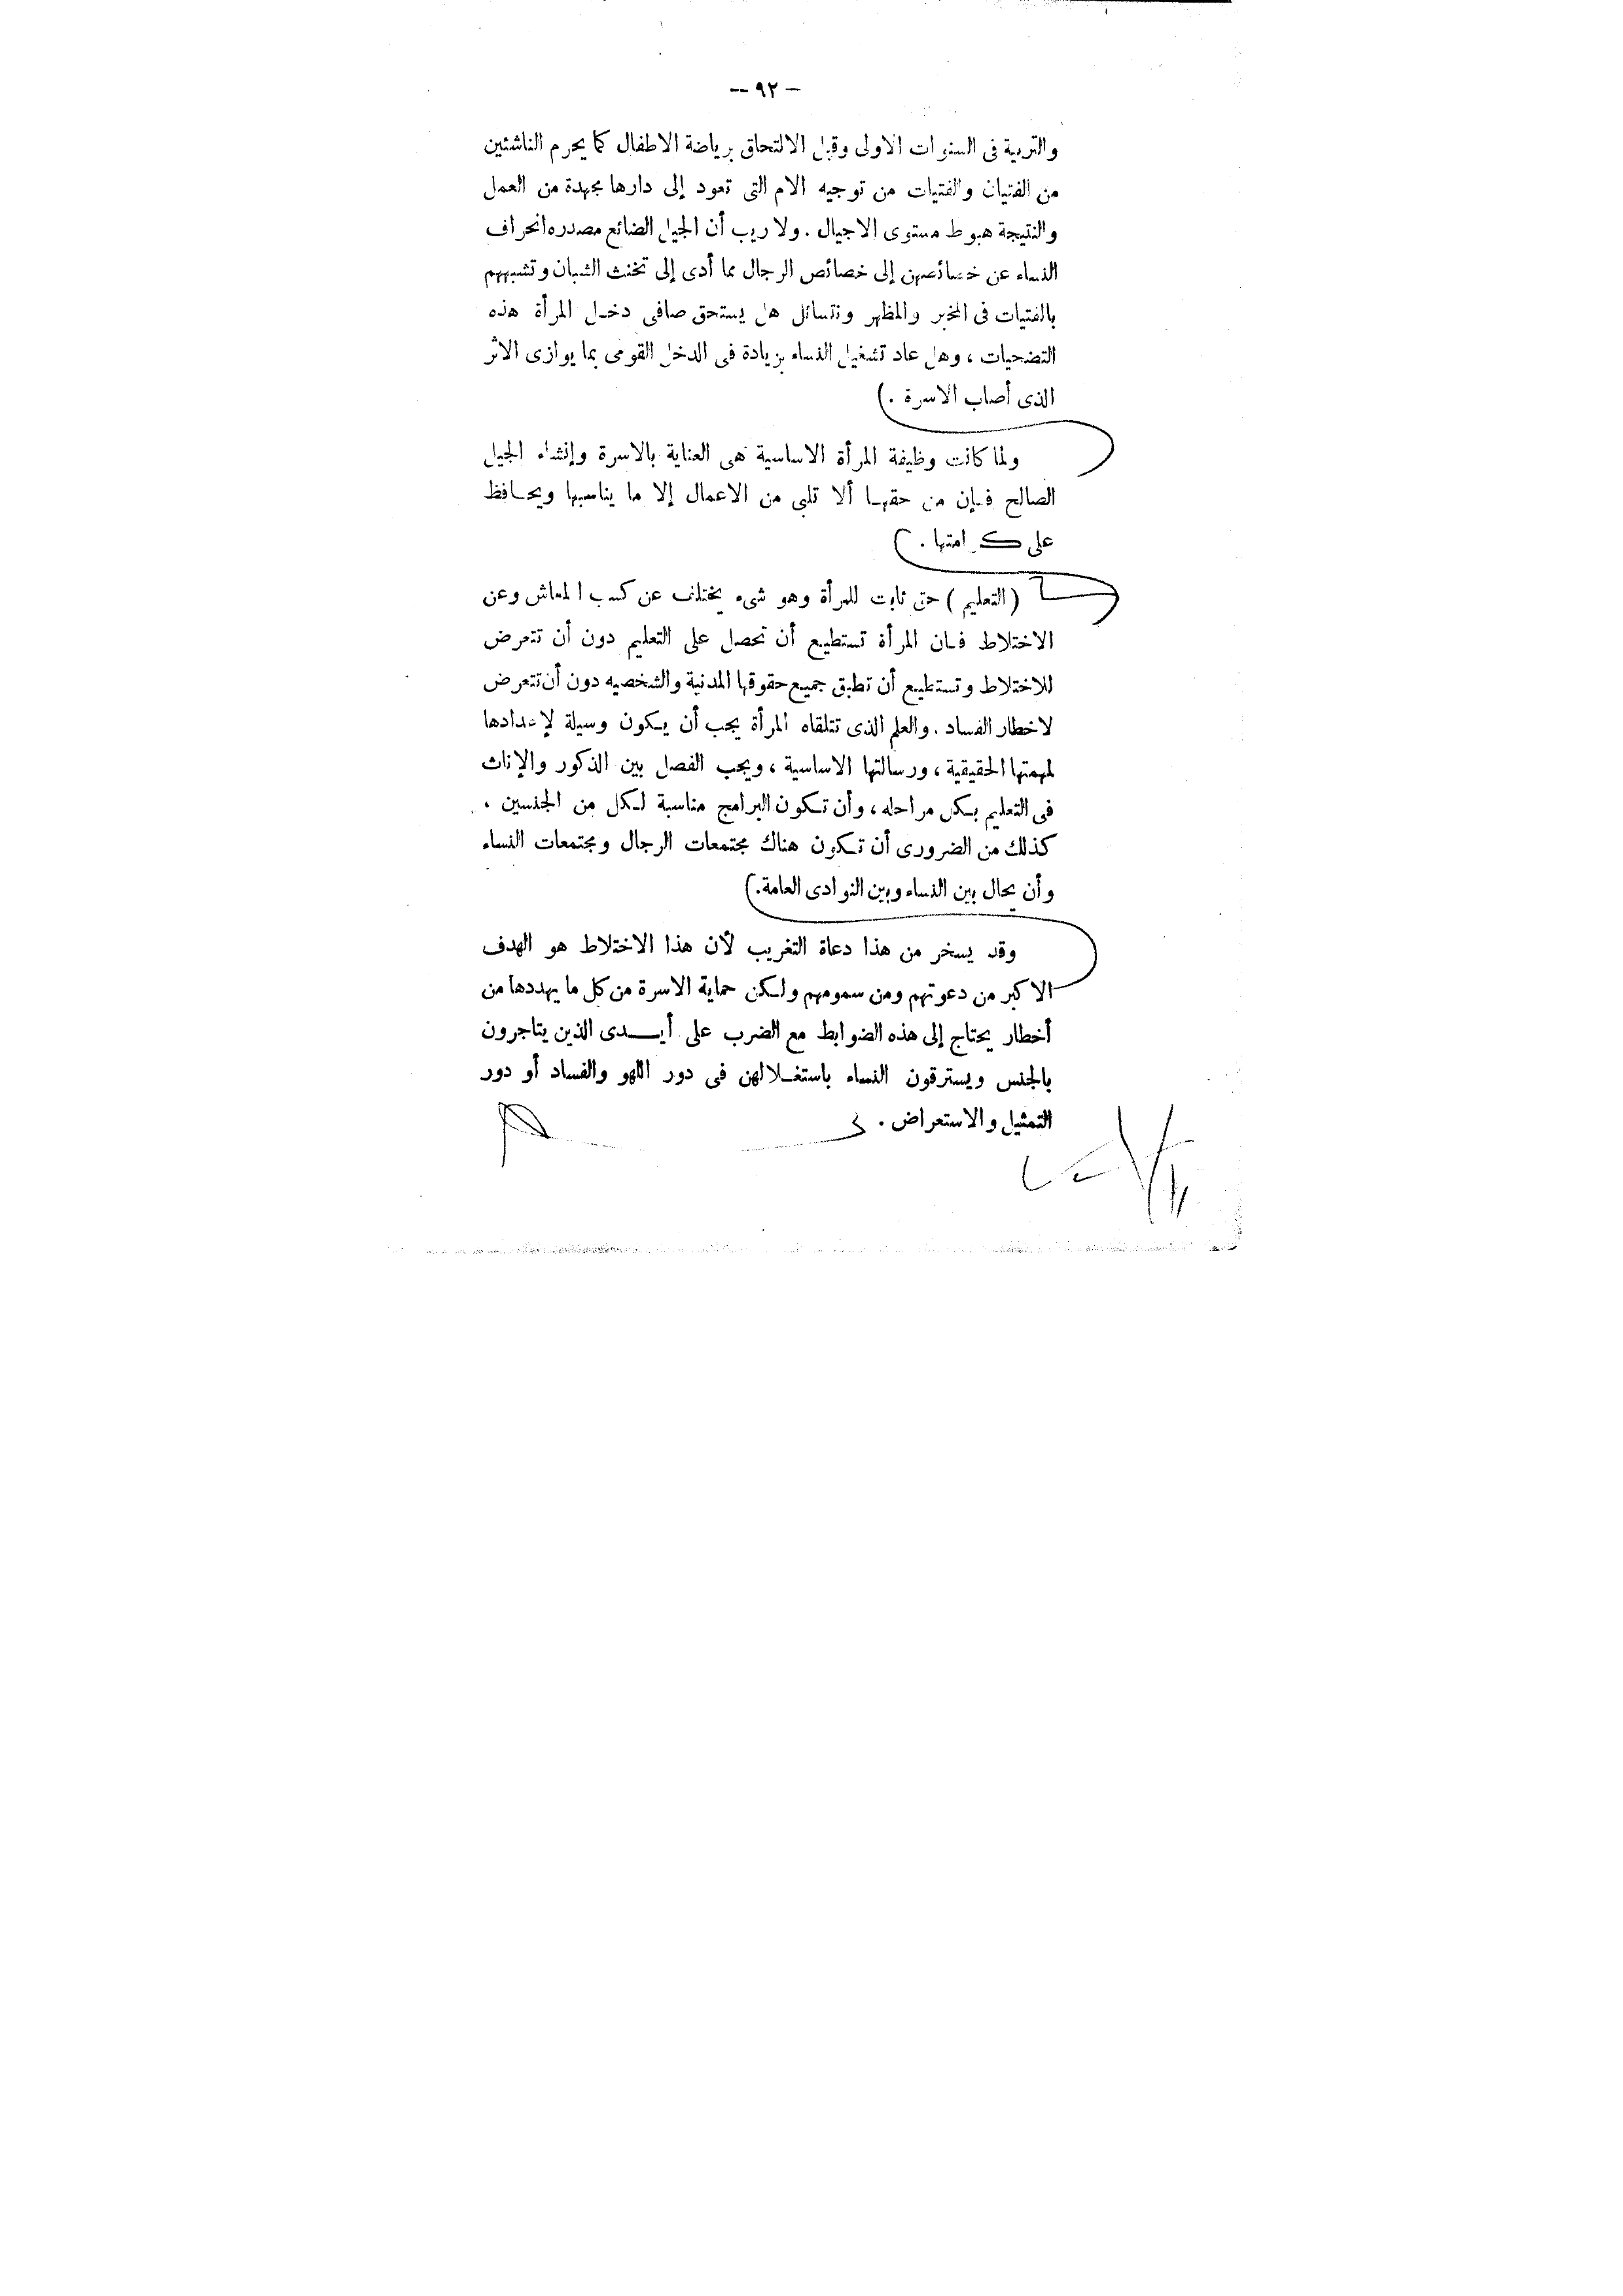 – ٩٢ --
والتربية فى السنوات الاولى وقبل الالتحاق برياضة الاطفال كما يحرم الناشئين
من الفتيان والفتيات من توجيه الام التى تعود إلى دارها مجهدة من العمل
والنتيجة هبوط مستوى الاجيال . ولا ريب أن الجيل الضائع مصدره انحراف
النساء عن خصائصهن إلى خصائص الرجال مما أدى إلى تخنث الشبان وتشبههم
بالفتيات فى المخبر والمظهر ونتسائل هل يستحق صافى دخل المرأة هذه
التضحيات ، وهل عاد تشغيل النساء بزيادة فى الدخل القومى بما يوازى الاثر
الذى أصاب الاسرة .)
ولما كانت وظيفة المرأة الاساسية هى العناية بالاسرة وإنشاء الجيل
الصالح فإن من حقها ألا تلى من الاعمال إلا ما يناسبها ويحافظ
على كرامتها .)
( التعليم ) حق ثابت للمرأة وهو شىء يختلف عن كسب المعاش وعن
الاختلاط فان المرأة تستطيع أن تحصل على التعليم دون أن تتعرض
للاختلاط وتستطيع أن تطبق جميع حقوقها المدنية والشخصيه دون أن تتعرض
لاخطار الفساد . والعلم الذى تتلقاه المرأة يجب أن يكون وسيلة لإعدادها
لمهمتها الحقيقية ، ورسالتها الاساسية ، ويجب الفصل بين الذكور والإناث
فى التعليم بكل مراحله ، وأن تكون البرامج مناسبة لكل من الجنسين .
كذلك من الضرورى أن تكون هناك مجتمعات الرجال ومجتمعات النساء
وأن يحال بين النساء وبين النوادى العامة .)
وقد يسخر من هذا دعاة التغريب لأن هذا الاختلاط هو الهدف
الاكبر من دعوتهم ومن سمومهم ولكن حماية الاسرة من كل ما يهددها من
أخطار يحتاج إلى هذه الضوابط مع الضرب على أيدى الذين يتاجرون
بالجنس ويسترقون النساء باستغلالهن فى دور اللهو والفساد أو دور
التمثيل والاستعراض .